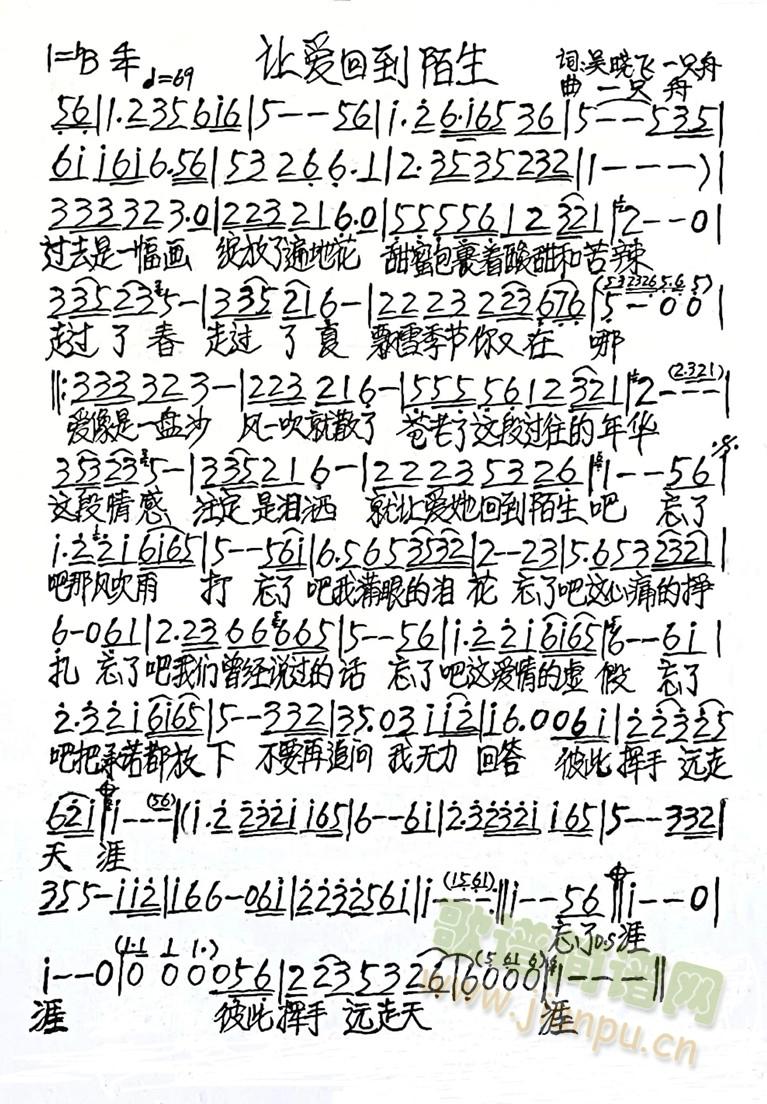 1=♭B 4/4 ♩=69 让爱回到陌生 词:吴晓飞 一只舟
曲 一只舟
56|1.235616|5--56|i.26.i6536|5--535|
6ii616.56|53266.1|2.3535232|1---)|
333323.0|2232216.0|5555612321|2--0|
过去是一幅画 绽放了遍地花 甜蜜包裹着酸甜和苦辣
335235-|335216-|2223223676|5-00|
走过了春 走过了夏 飘雪季节你又在哪
‖:333323-|223216-|5555612321|2---|
爱像是一盘沙 风一吹就散了 苍老了这段过往的年华
353235-|335216-|222235326|1--56|
这段情感 注定是泪洒 就让爱她回到陌生吧 忘了
i.22i6i65|5--56i|6.5653532|2--23|5.6532321|
吧那风吹雨 打 忘了吧我满眼的泪花 忘了吧这心痛的挣
6-061|2.2366665|5--56|i.22i6i65|6--6i|
扎 忘了吧我们曾经说过的话 忘了吧这爱情的虚假 忘了
2.32i6i65|5--332|35.03ii2|i6.006i|22325
吧把承诺都放下 不要再追问 我无力回答 彼此挥手 远走
62i|i---(56)|(i.2232ii65|6--6i|2.3232ii65|5--332|
天 涯
355-ii2|i66-06i|2232561|i---(1561):‖i--56‖i--0|
忘了 D.S 涯
i--0|0000056|22353266|6000|i---‖
涯 彼此挥手 远走天 涯
歌谱简谱网
www.jianpu.cn